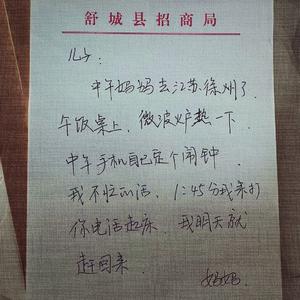 舒城县招商局
儿子：
中午妈妈去江苏徐州了.
午饭桌上，微波炉热一下.
中午手机自己定个闹钟.
我不忙的话，1:45分我来打
你电话起床.我明天就
赶回来.
妈妈.